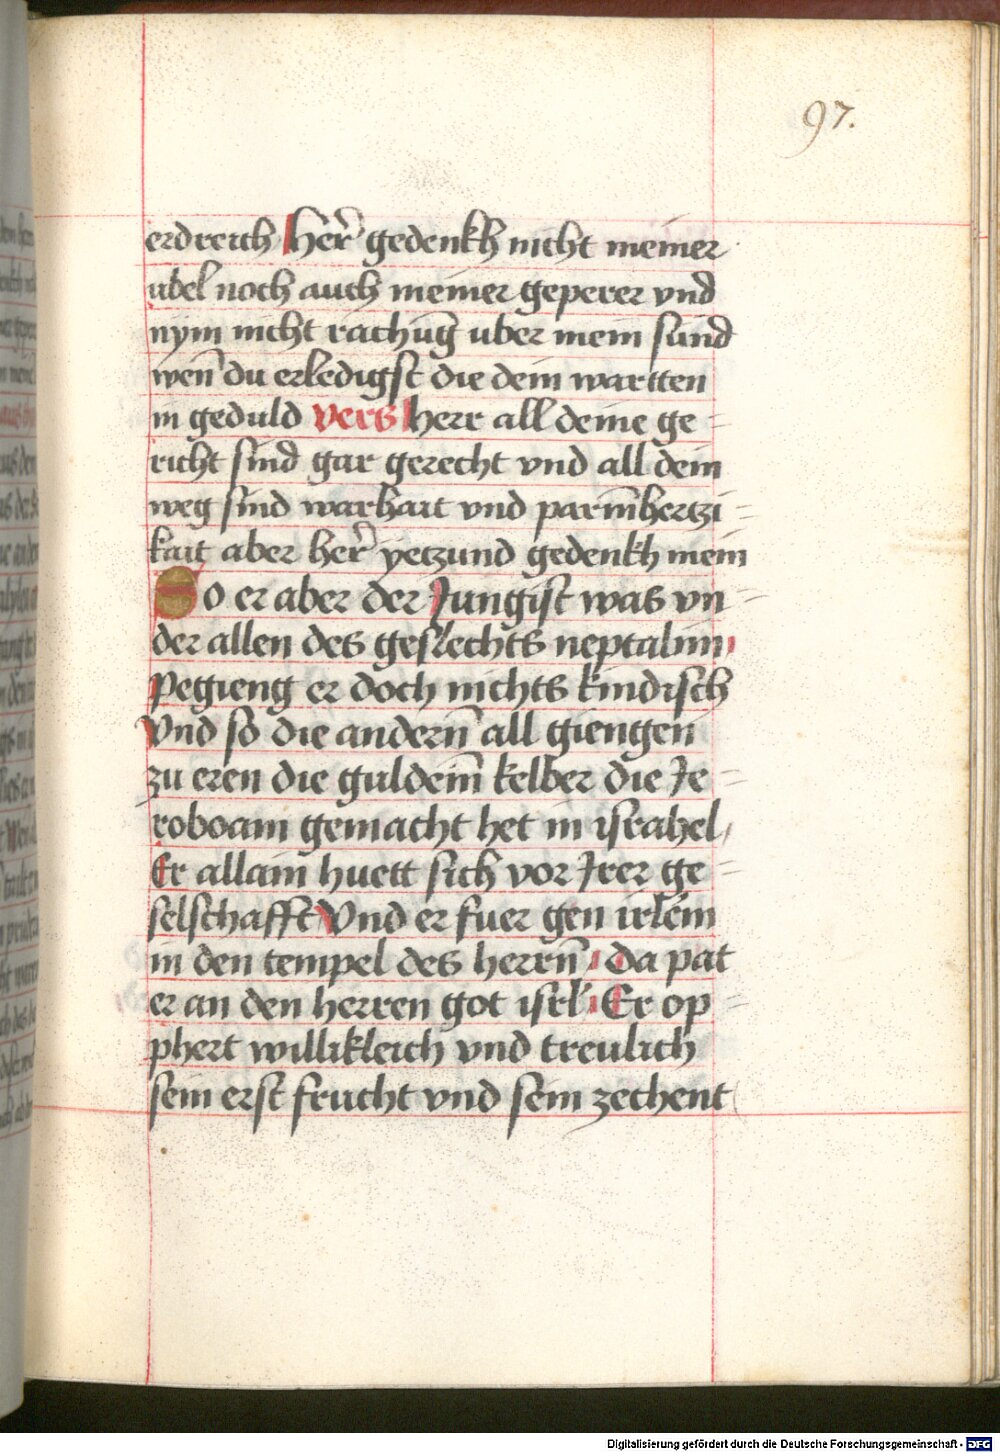 97.
erdreich Her̃ gedenkh nicht meiner
ubel noch auch meiner geperer vnd
nym nicht rachūg uber mein sünd
wen̄ du erledigst die dein wartten
in geduld vers herr all deine ge=
richt sind gar gerecht vnd all dein
weg sind warhait vnd parm̄hertzi=
kait aber her̃ yetzund gedenkh mein
So er aber der Jungist was vn=
der allen des geslechts neptalim
Pegieng er doch nichts kindisch
Vnd so die andern̄ all giengen
zu eren die guldein̄ kelber die Je=
roboam gemacht het in israhel
Er allain huett sich vor Irer ge=
selschafft Vnd er fuer gen irl̄em
in den tempel des herrn̄ Da pat
er an den herren got isrl̄ Er op=
phert willikleich vnd treulich
sein erst frucht vnd sein zechent
Digitalisierung gefördert durch die Deutsche Forschungsgemeinschaft - DFG